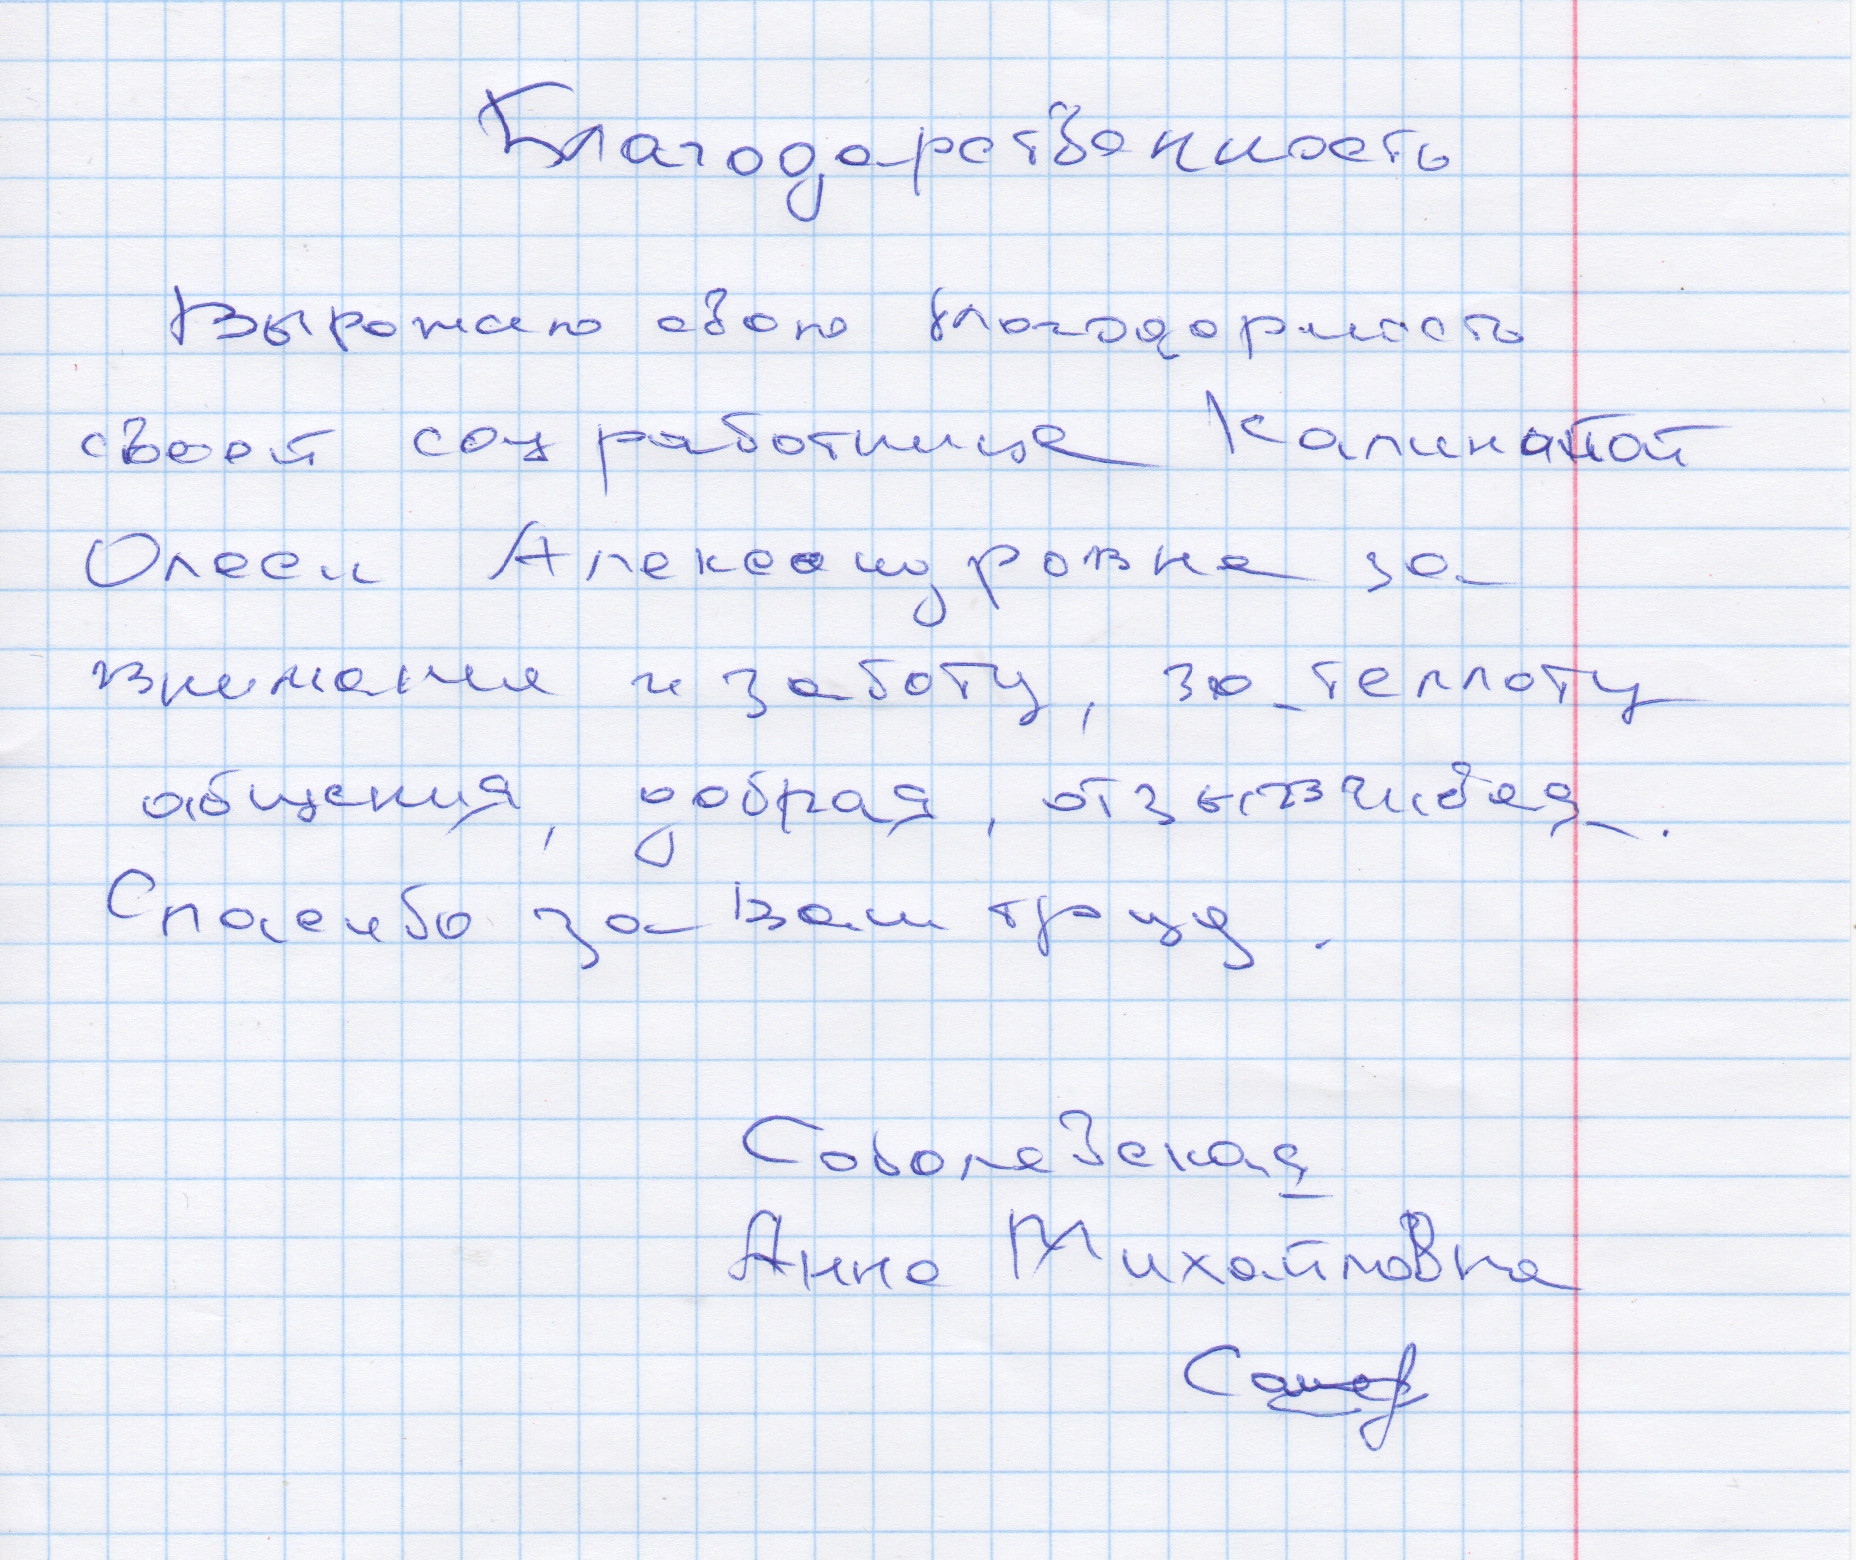 Благодарственность
Выражаю свою благодарность
своей соц работнице
Олеси Александровне за
внимание и заботу, за теплоту
общения, добрая, отзывчивая.
Спасибо за Ваш труд.
Соболевская
Анна Михайловна